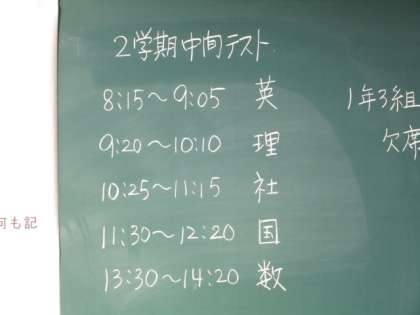 2学期中間テスト
8:15〜9:05 英
9:20〜10:10 理
10:25〜11:15 社
11:30〜12:20 国
13:30〜14:20 数
1年3組
欠席
何も記